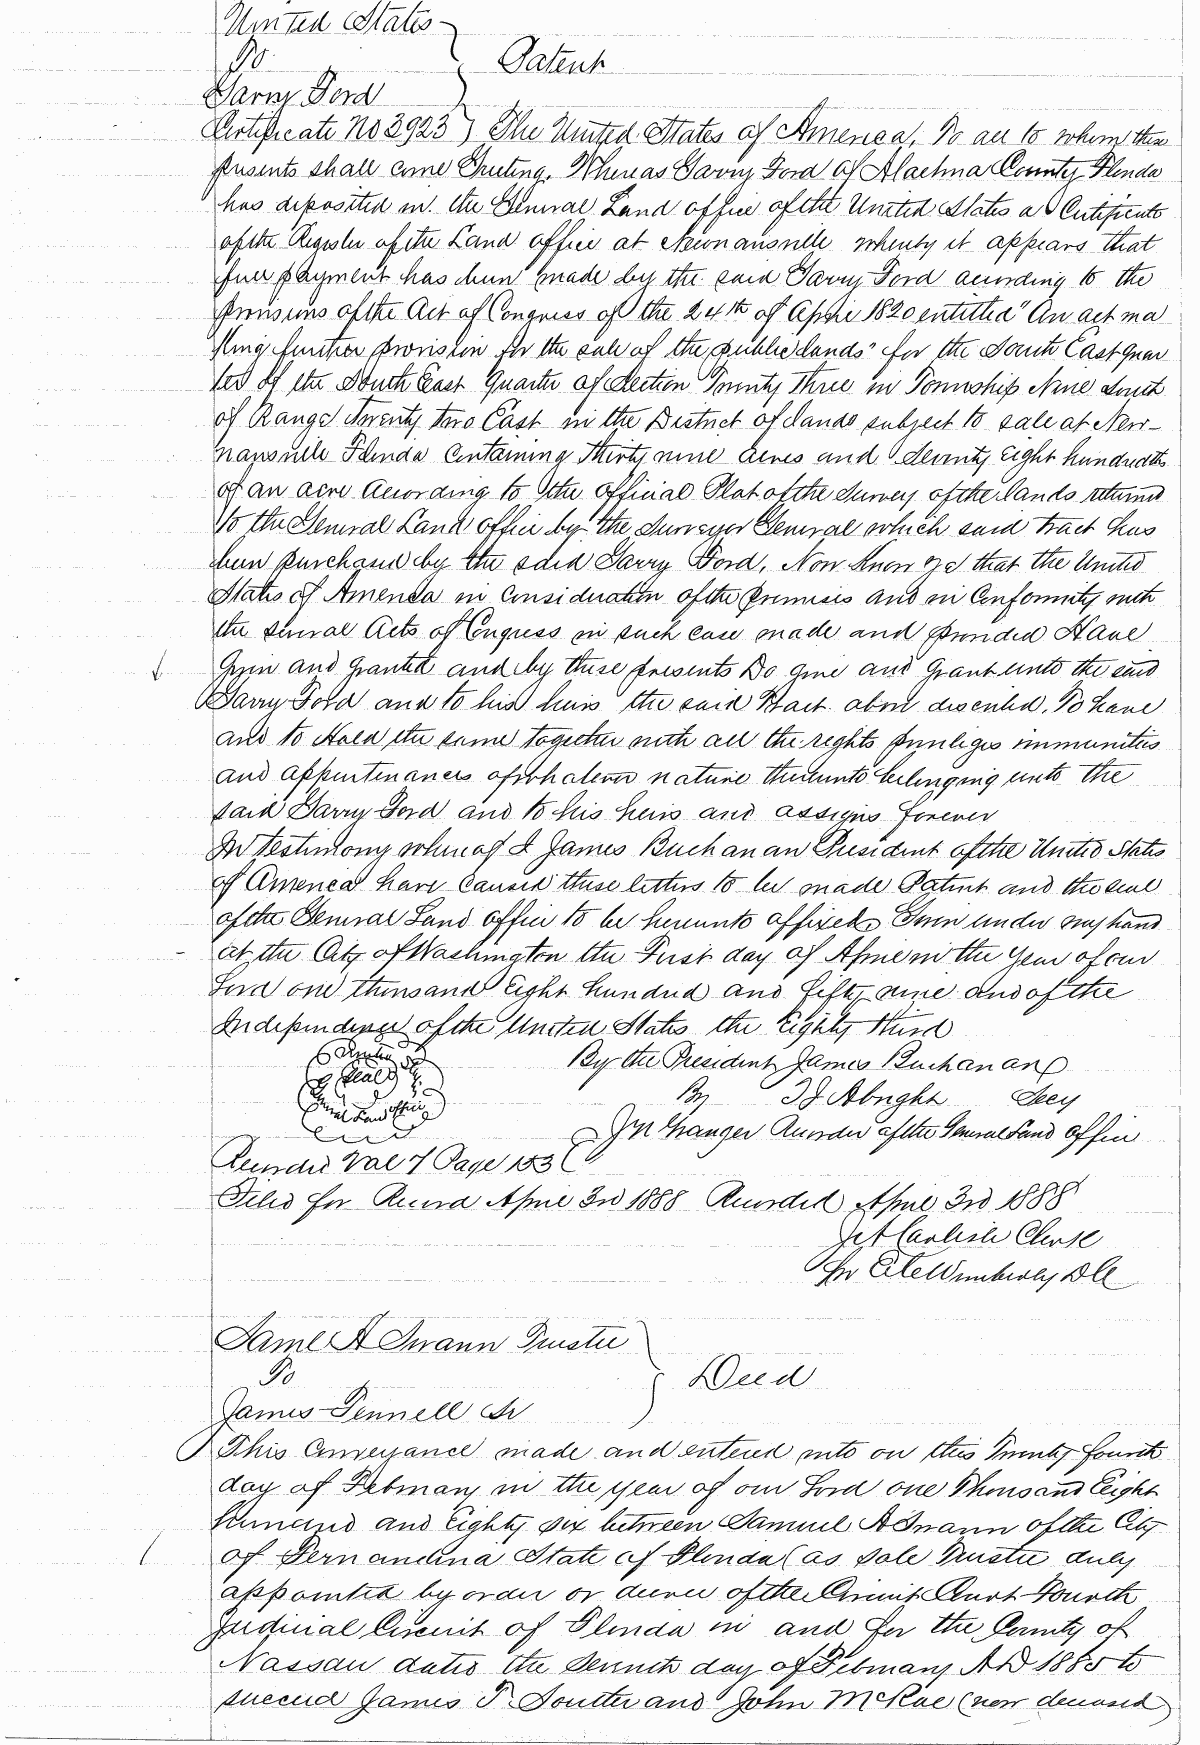 United States
To
Garry Ford
Patent
Certificate No 3923 } The United States of America, To all to whom these
presents shall come Greeting. Whereas Garry Ford of Alachua County Florida
has deposited in the General Land office of the United States a Certificate
of the Register of the Land office at Newnansville whereby it appears that
full payment has been made by the said Garry Ford according to the
provisions of the Act of Congress of the 24th of April 1820 entitled "An act ma
king further provision for the sale of the public lands" for the South East quar
ter of the South East quarter of Section Twenty Three in Township Nine South
of Range Twenty two East in the District of lands subject to sale at New-
nansville Florida Containing Thirty nine acres and Seventy Eight hundredths
of an acre According to the official Plat of the Survey of the lands returned
to the General Land office by the Surveyor General which said tract has
been purchased by the said Garry Ford, Now Know Ye that the United
States of America in Consideration of the Premises and in Conformity with
the several Acts of Congress in such case made and provided Have
Given and granted and by these presents Do give and Grant unto the said
Garry Ford and to his heirs the said Tract above described. To have
and to Hold the same together with all the rights privileges immunities
and appurtenances of whatever nature thereunto belonging unto the
said Garry Ford and to his heirs and assigns forever
In testimony whereof I James Buchanan President of the United States
of America have caused these letters to be made Patent and the seal
of the General Land office to be hereunto affixed. Given under my hand
at the City of Washington the First day of April in the Year of our
Lord one thousand Eight hundred and fifty nine and of the
Independence of the United States the Eighty third
By the President James Buchanan
Seal
General Land office
By J Albright Secy
J N Granger Recorder of the General Land office
Recorded Vol 7 Page 153
Filed for Record April 3rd 1888 Recorded April 3rd 1888
Carlisle Clerk
Wimberly D C
Saml A Swann Trustee
To
Deed
James Pennell Sr
This Conveyance made and entered into on this Twenty fourth
day of February in the year of our Lord one Thousand Eight
hundred and Eighty six between Samuel A Swann of the City
of Fernandina State of Florida (as sole Trustee duly
appointed by order or decree of the Circuit Court Fourth
Judicial Circuit of Florida in and for the County of
Nassau dated the Seventh day of February A D 1885 to
succeed James T. Soutter and John McRae (now deceased)